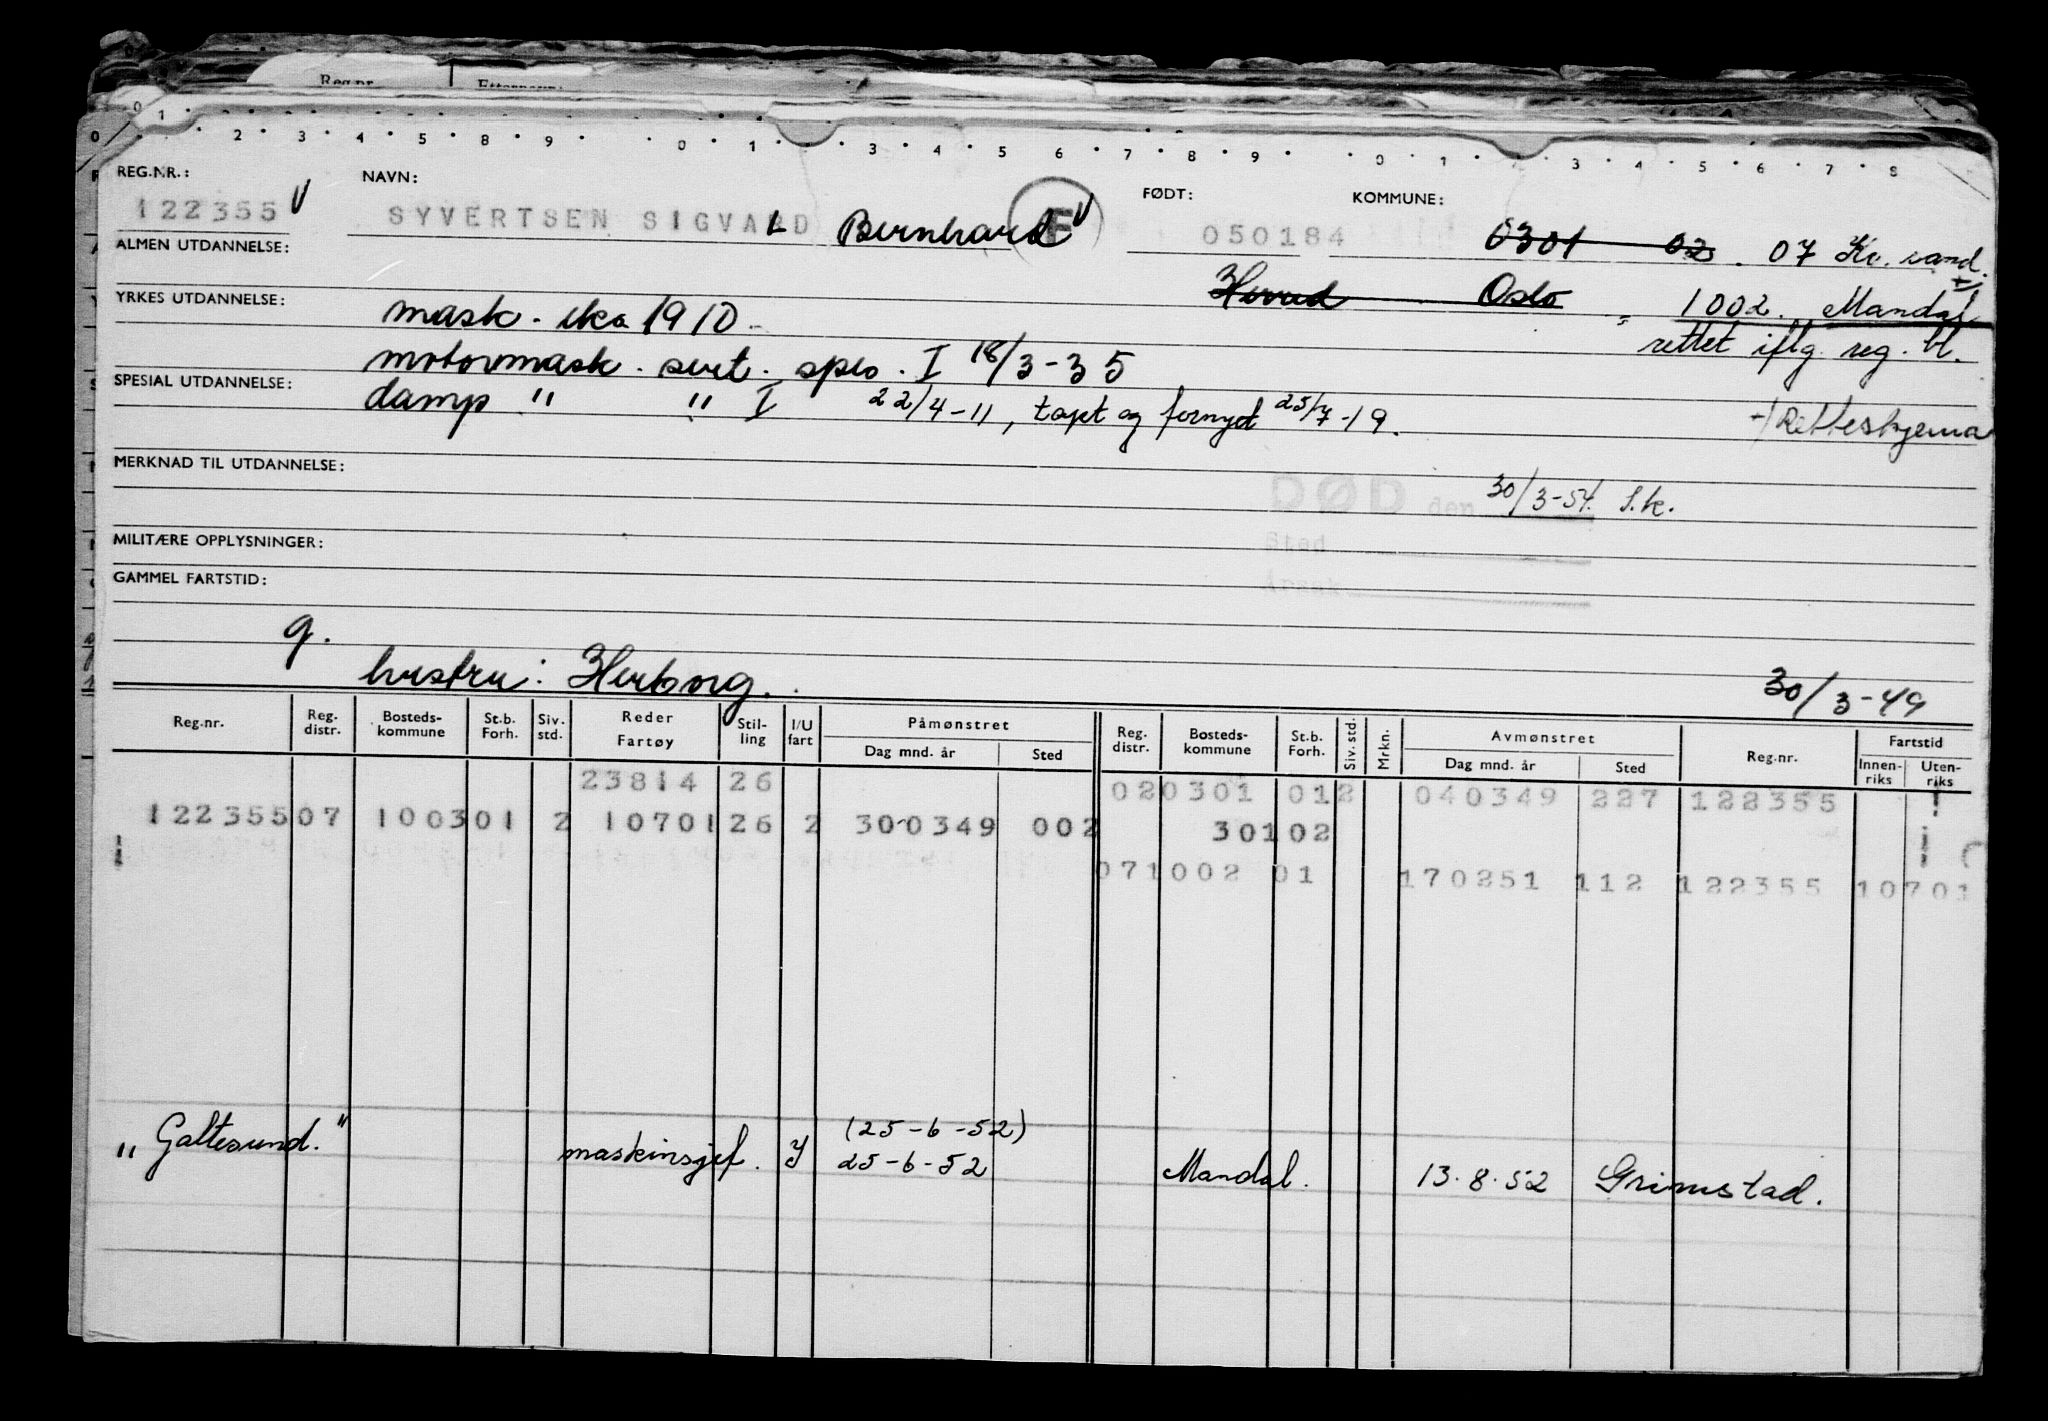 Reg.nr.
0 1 2 3 4 5 8 9 0 1 3 4 5 6 7 8 9 0 1 3 4 5 6 7 8
REG.NR.: NAVN: FØDT: KOMMUNE:
122355 SYVERTSEN SIGVALD Bernhard F 050184 0301 02 . 07 Kr. sand.
ALMEN UTDANNELSE:
Herred Oslo 1002. Mandal
YRKES UTDANNELSE: mask. 1910
rettet iflg. reg. bl.
motormask. sert. spes. I 18/3-35
SPESIAL UTDANNELSE:
damp " " I 22/4-11, tapt og fornyet 25/7-19.
Retteskjema
MERKNAD TIL UTDANNELSE:
DØD den 30/3-54. S.k.
Sted
MILITÆRE OPPLYSNINGER:
Årsak
GAMMEL FARTSTID:
g.
hustru: Herborg.
30/3-49
Reg.nr. Reg. distr. Bosteds-kommune St.b. Forh. Siv. std. Reder Fartøy Stil-ling I/U fart Påmønstret Dag mnd. år Sted Reg. distr. Bosteds-kommune St.b. Forh. Siv. std. Mrkn. Avmønstret Dag mnd. år Sted Reg.nr. Fartstid Innen-riks Uten-riks
23814 26 020301 012 040349 227 122355
122355 07 1003 01 2 10701 26 2 300349 002 301 02
071002 01 170251 112 122355 10701
(25-6-52)
"Galtesund." maskinsjef. 25-6-52 Mandal. 13.8.52 Grimstad.